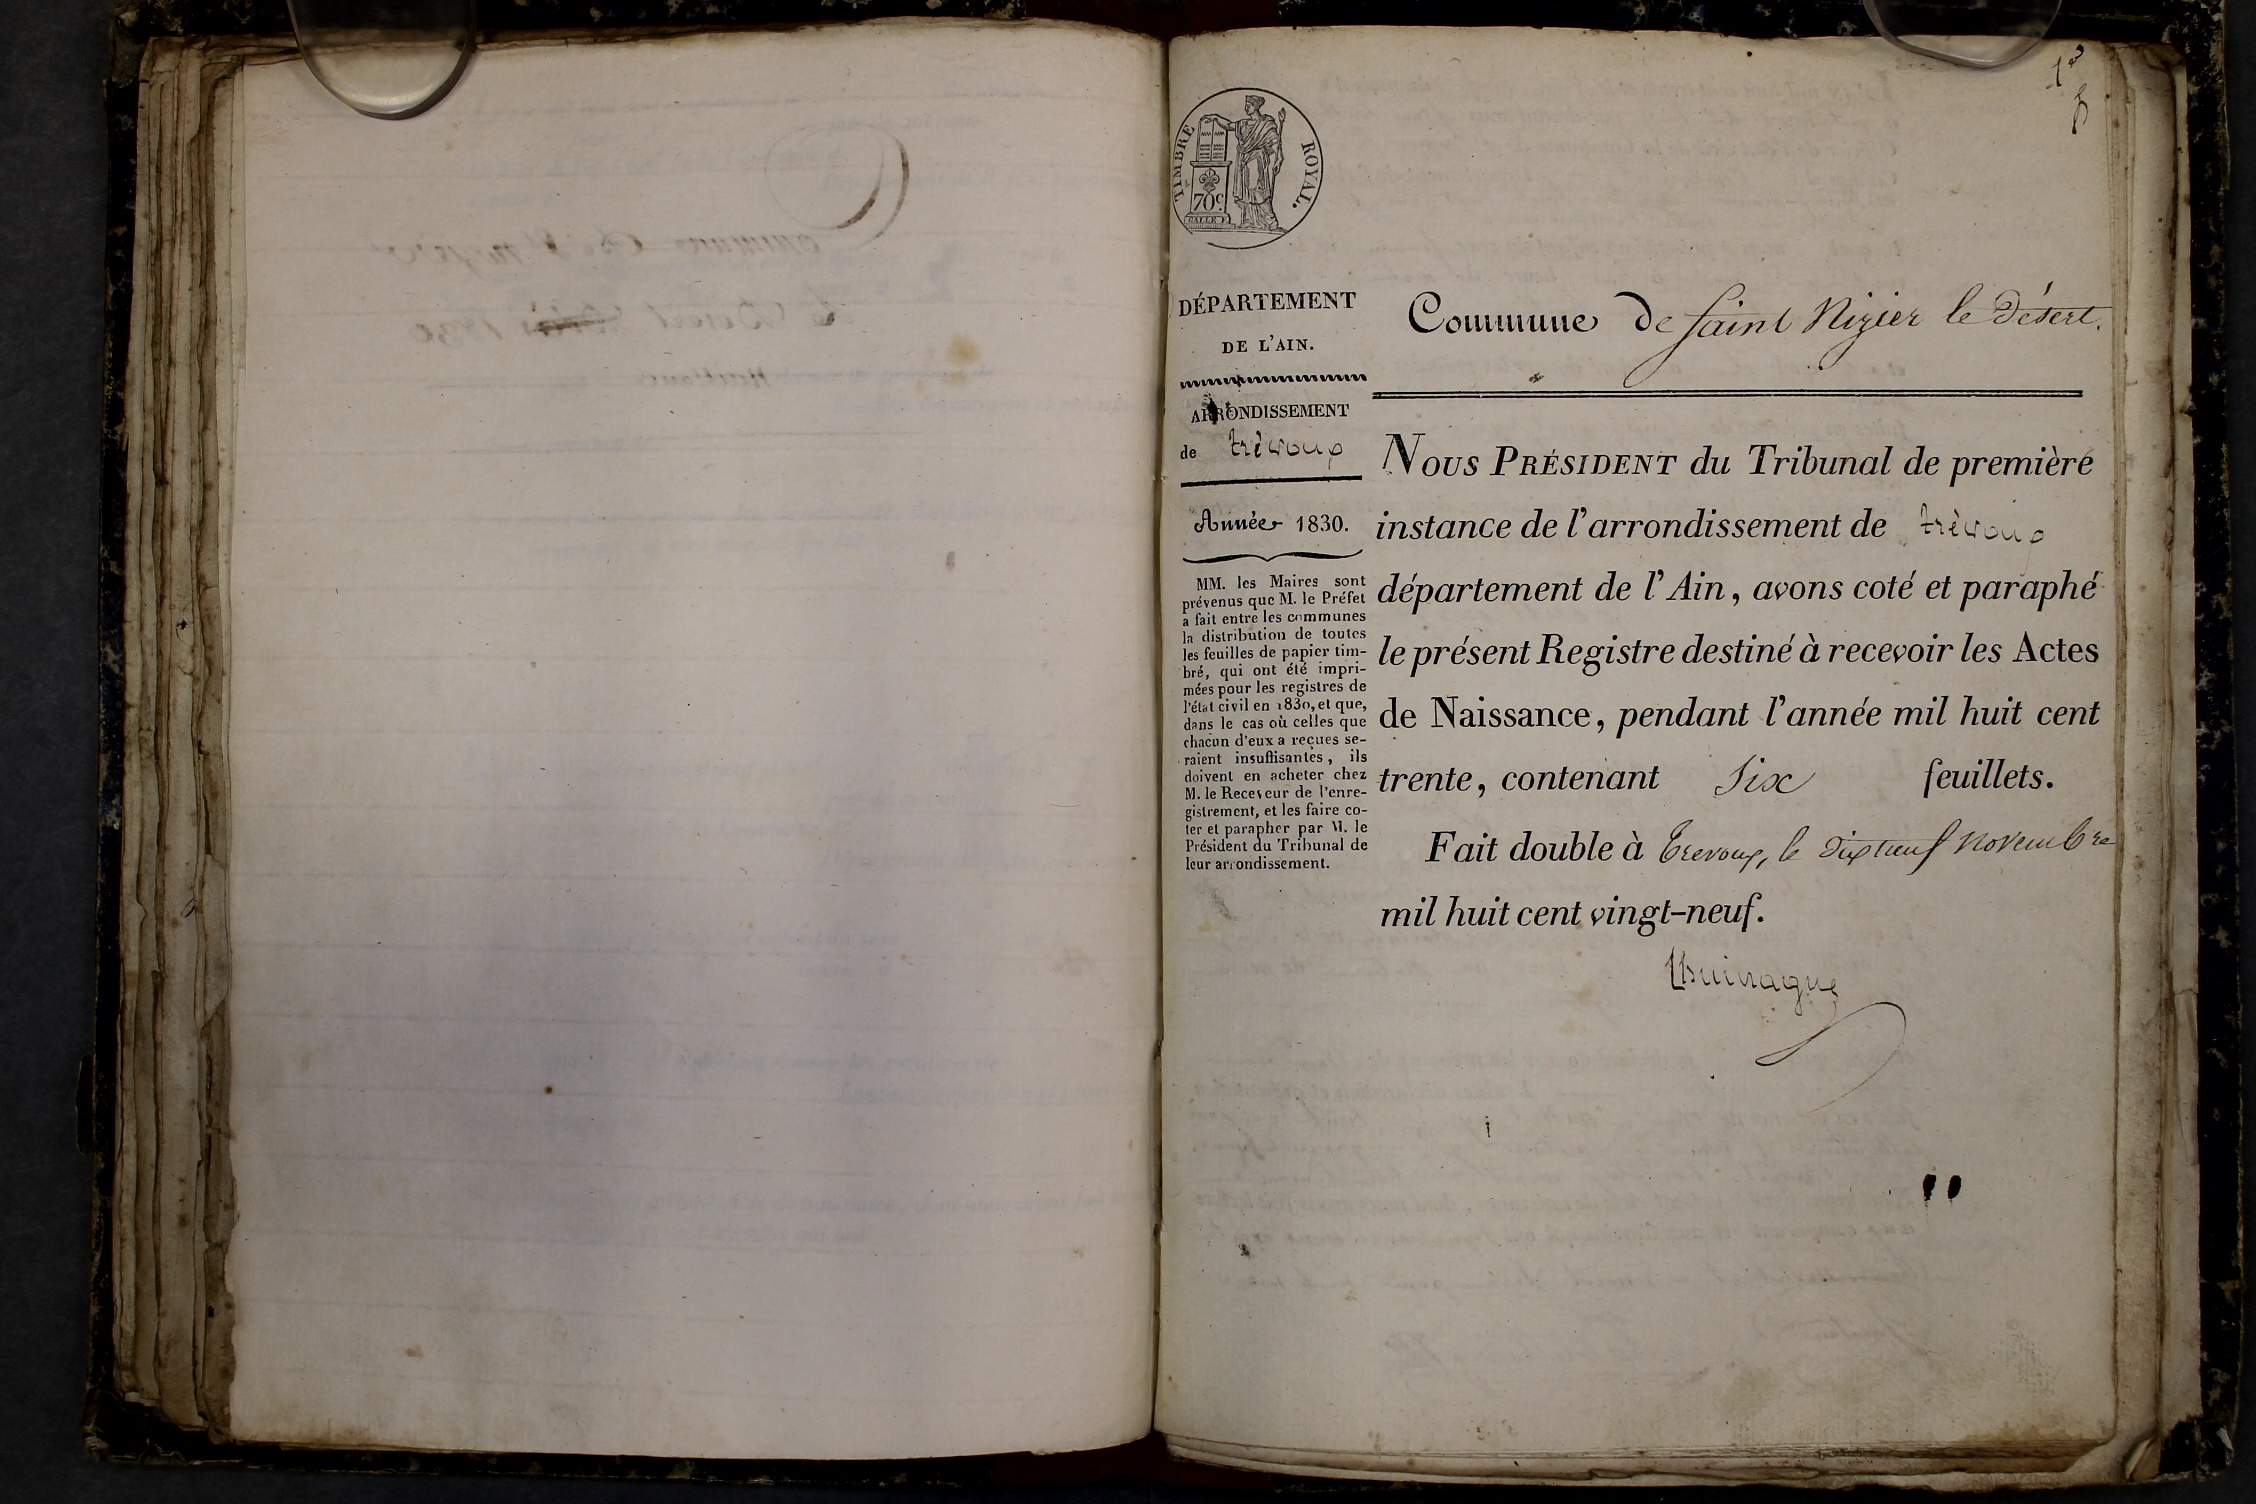 1er
TIMBRE ROYAL.
70c.
DÉPARTEMENT
DE L'AIN.
ARRONDISSEMENT
de trévoux
Année 1830.
MM. les Maires sont
prévenus que M. le Préfet
a fait entre les communes
la distribution de toutes
les feuilles de papier tim-
bré, qui ont été impri-
mées pour les registres de
l'état civil en 1830, et que,
dans le cas où celles que
chacun d'eux a reçues se-
raient insuffisantes, ils
doivent en acheter chez
M. le Receveur de l'enre-
gistrement, et les faire co-
ter et parapher par M. le
Président du Tribunal de
leur arrondissement.
Commune de Saint Nizier le Désert.
NOUS PRÉSIDENT du Tribunal de première
instance de l'arrondissement de trévoux
département de l'Ain, avons coté et paraphé
le présent Registre destiné à recevoir les Actes
de Naissance, pendant l'année mil huit cent
trente, contenant six feuillets.
Fait double à Trevoux, le dixneuf novembre
mil huit cent vingt-neuf.